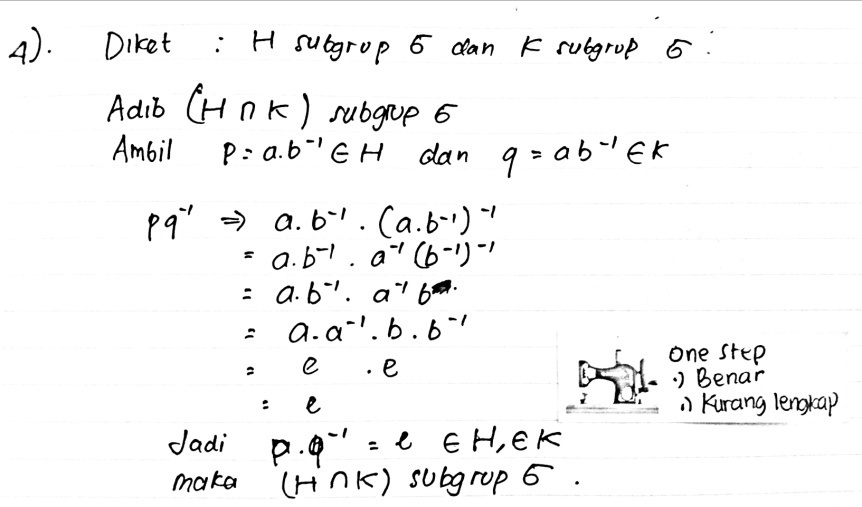 4). Diket : H subgrup G dan K subgrup G.
Adib (H ∩ K) subgrup G
Ambil p = a.b⁻¹ ∈ H dan q = ab⁻¹ ∈ K
pq⁻¹ ⇒ a.b⁻¹ . (a.b⁻¹)⁻¹
= a.b⁻¹ . a⁻¹ (b⁻¹)⁻¹
= a.b⁻¹. a⁻¹ b
= a.a⁻¹.b.b⁻¹
= e .e
= e
Jadi p.q⁻¹ = e ∈ H, ∈ K
maka (H ∩ K) subgrup G.
One Step
·) Benar
·) Kurang lengkap